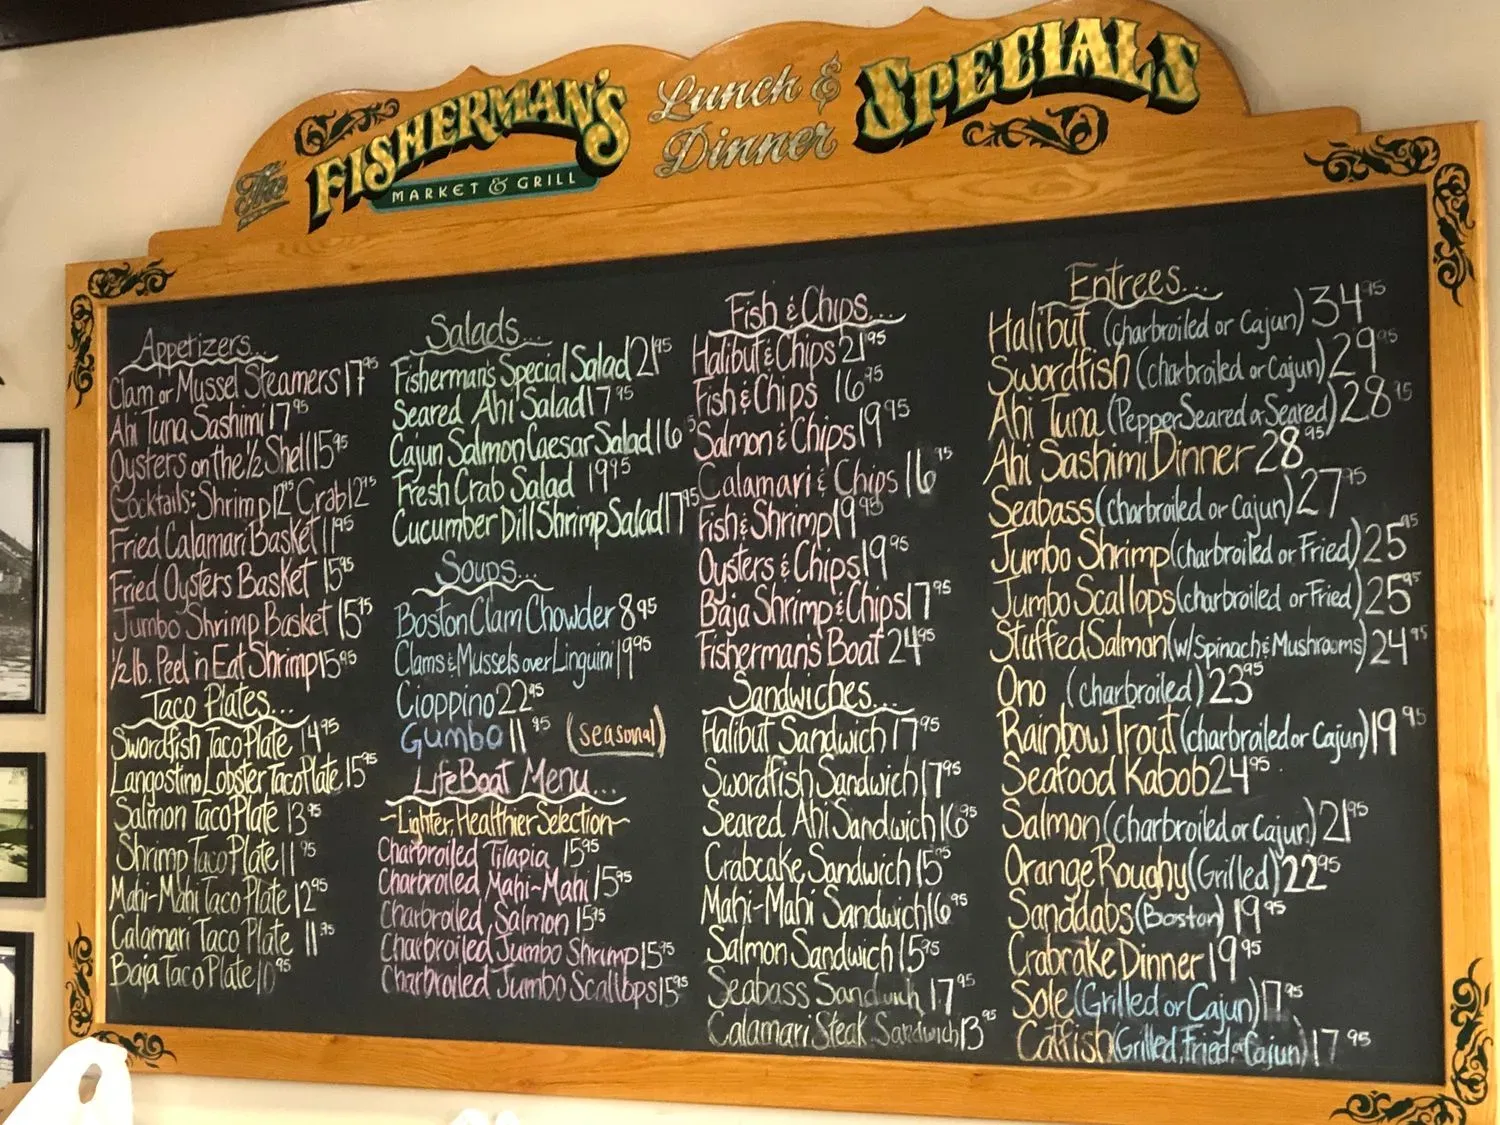 The FISHERMAN'S
MARKET & GRILL
Lunch &
Dinner
SPECIALS
Appetizers...
Clam or Mussel Steamers 17 95
Ahi Tuna Sashimi 17 95
Oysters on the 1/2 Shell 15 95
Cocktails: Shrimp 12 95 Crab 12 95
Fried Calamari Basket 11 95
Fried Oysters Basket 15 95
Jumbo Shrimp Basket 15 95
1/2 lb. Peel n Eat Shrimp 15 95
Taco Plates...
Swordfish Taco Plate 14 95
Langostino Lobster Taco Plate 15 95
Salmon Taco Plate 13 95
Shrimp Taco Plate 11 95
Mahi-Mahi Taco Plate 12 95
Calamari Taco Plate 11 95
Baja Taco Plate 10 95
Salads...
Fisherman's Special Salad 21 95
Seared Ahi Salad 17 95
Cajun Salmon Caesar Salad 16 5
Fresh Crab Salad 19 95
Cucumber Dill Shrimp Salad 17 95
Soups...
Boston Clam Chowder 8 95
Clams & Mussels over Linguini 19 95
Cioppino 22 95
Gumbo 11 95 (seasonal)
LifeBoat Menu...
~Lighter, Healthier Selection~
Charbroiled Tilapia 15 95
Charbroiled Mahi-Mahi 15 95
Charbroiled Salmon 15 95
Charbroiled Jumbo Shrimp 15 95
Charbroiled Jumbo Scallops 15 95
Fish & Chips...
Halibut & Chips 21 95
Fish & Chips 16 95
Salmon & Chips 19 95
Calamari & Chips 16 95
Fish & Shrimp 19 95
Oysters & Chips 19 95
Baja Shrimp & Chips 17 95
Fisherman's Boat 24 95
Sandwiches...
Halibut Sandwich 17 95
Swordfish Sandwich 17 95
Seared Ahi Sandwich 16 95
Crabcake Sandwich 15 95
Mahi-Mahi Sandwich 16 95
Salmon Sandwich 15 95
Seabass Sandwich 17 95
Calamari Steak Sandwich 13 95
Entrees...
Halibut (charbroiled or Cajun) 34 95
Swordfish (charbroiled or Cajun) 29 95
Ahi Tuna (Pepper Seared or Seared) 28 95
Ahi Sashimi Dinner 28 95
Seabass (charbroiled or Cajun) 27 95
Jumbo Shrimp (charbroiled or Fried) 25 95
Jumbo Scallops (charbroiled or Fried) 25 95
Stuffed Salmon (w/ Spinach & Mushrooms) 24 95
Ono (charbroiled) 23 95
Rainbow Trout (charbroiled or Cajun) 19 95
Seafood Kabob 24 95
Salmon (charbroiled or Cajun) 21 95
Orange Roughy (Grilled) 22 95
Sanddabs (Boston) 19 95
Crabcake Dinner 19 95
Sole (Grilled or Cajun) 17 95
Catfish (Grilled, Fried or Cajun) 17 95